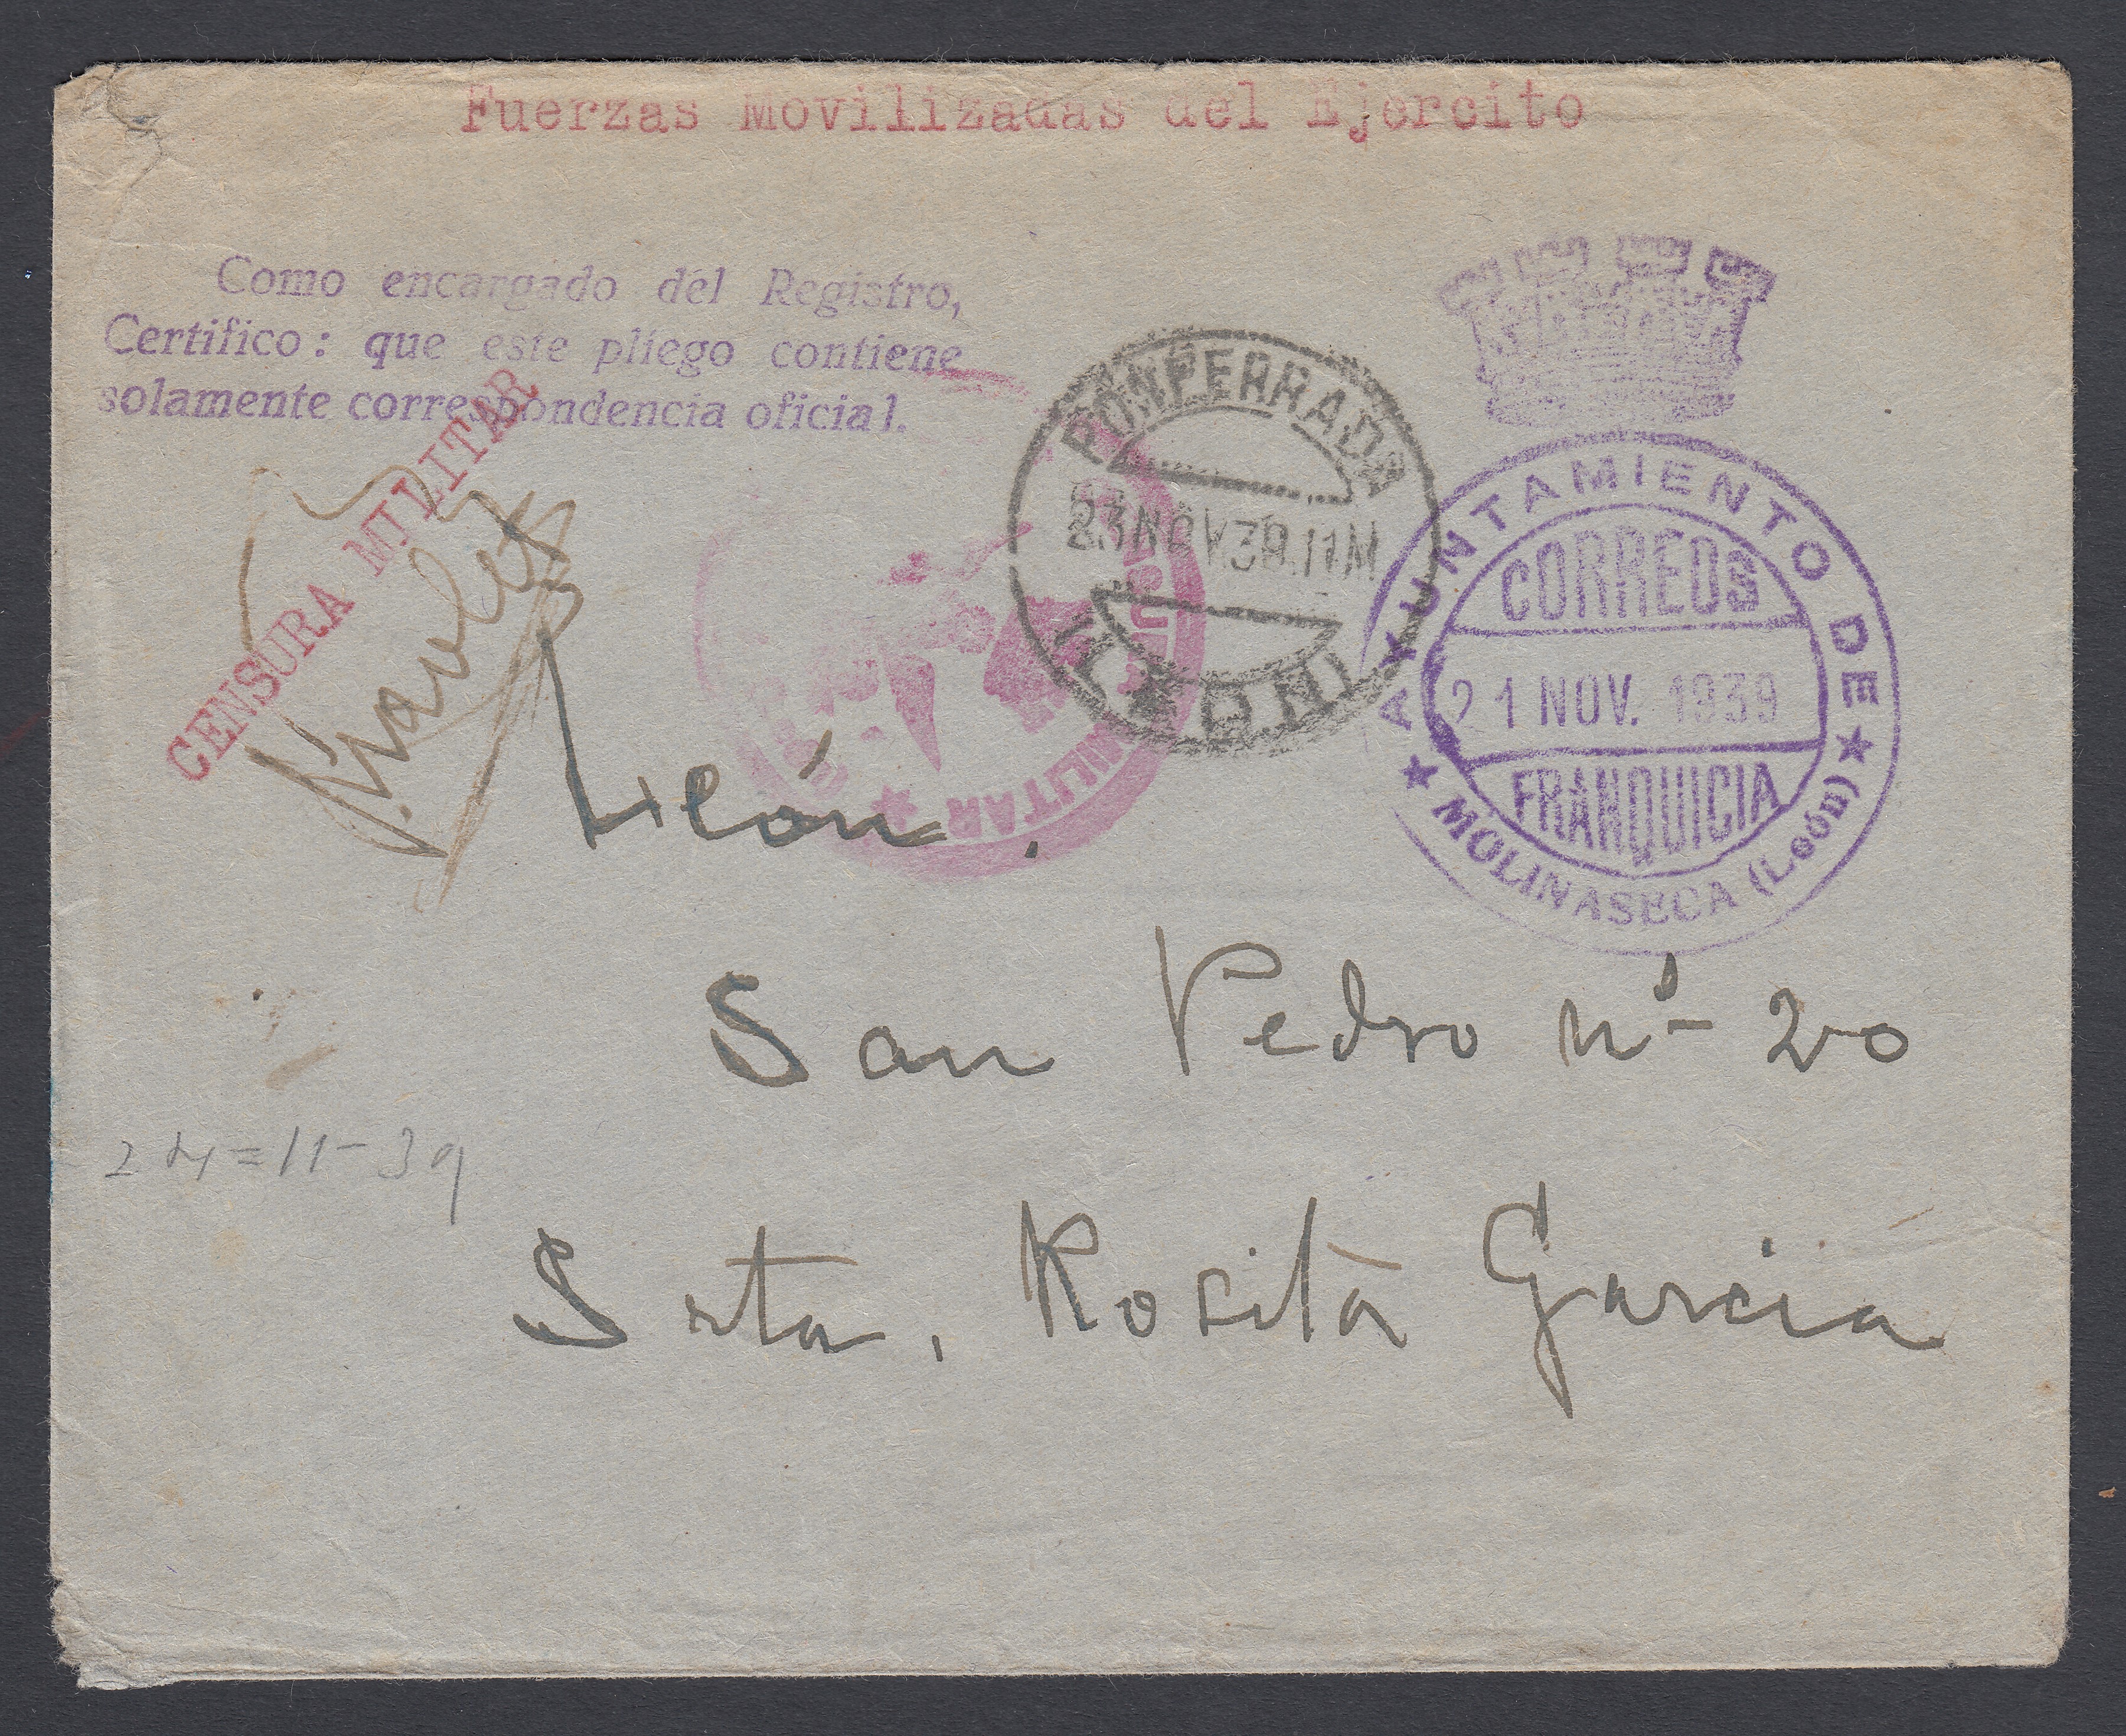 Fuerzas Movilizadas del Ejercito
Como encargado del Registro,
Certifico: que este pliego contiene
solamente correspondencia oficial.
CENSURA MILITAR
PONFERRADA
23 NOV 39. 11M
(LEON)
MILITAR
AYUNTAMIENTO DE
CORREOS
21 NOV. 1939
FRANQUICIA
MOLINASECA (León)
León.
San Pedro nº 20
24=11-39
Srta. Rosita Garcia